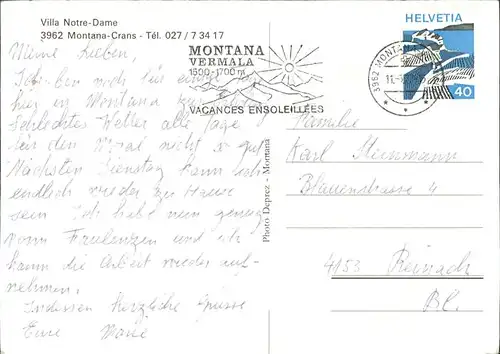 Villa Notre-Dame
3962 Montana-Crans - Tél. 027 / 7 34 17
MONTANA
VERMALA
1500-1700 m
VACANCES ENSOLEILLÉES
3962 MONTANA
HELVETIA
40
Meine Lieben,
Ich bin noch für
hier in Montana zur
schlechtes Wetter alle Tage
ist die Moral nicht gut
Nächsten Dienstag kann ich
endlich wieder zu Hause
sein. Ich habe nun genug
vom Faulenzen und ich
kann die Arbeit wieder auf-
nehmen.
Indessen herzliche Grüsse
Eure Marie
Photo Deprez - Montana
Familie
Karl
Blauenstrasse 4
4153 Reinach
BL.